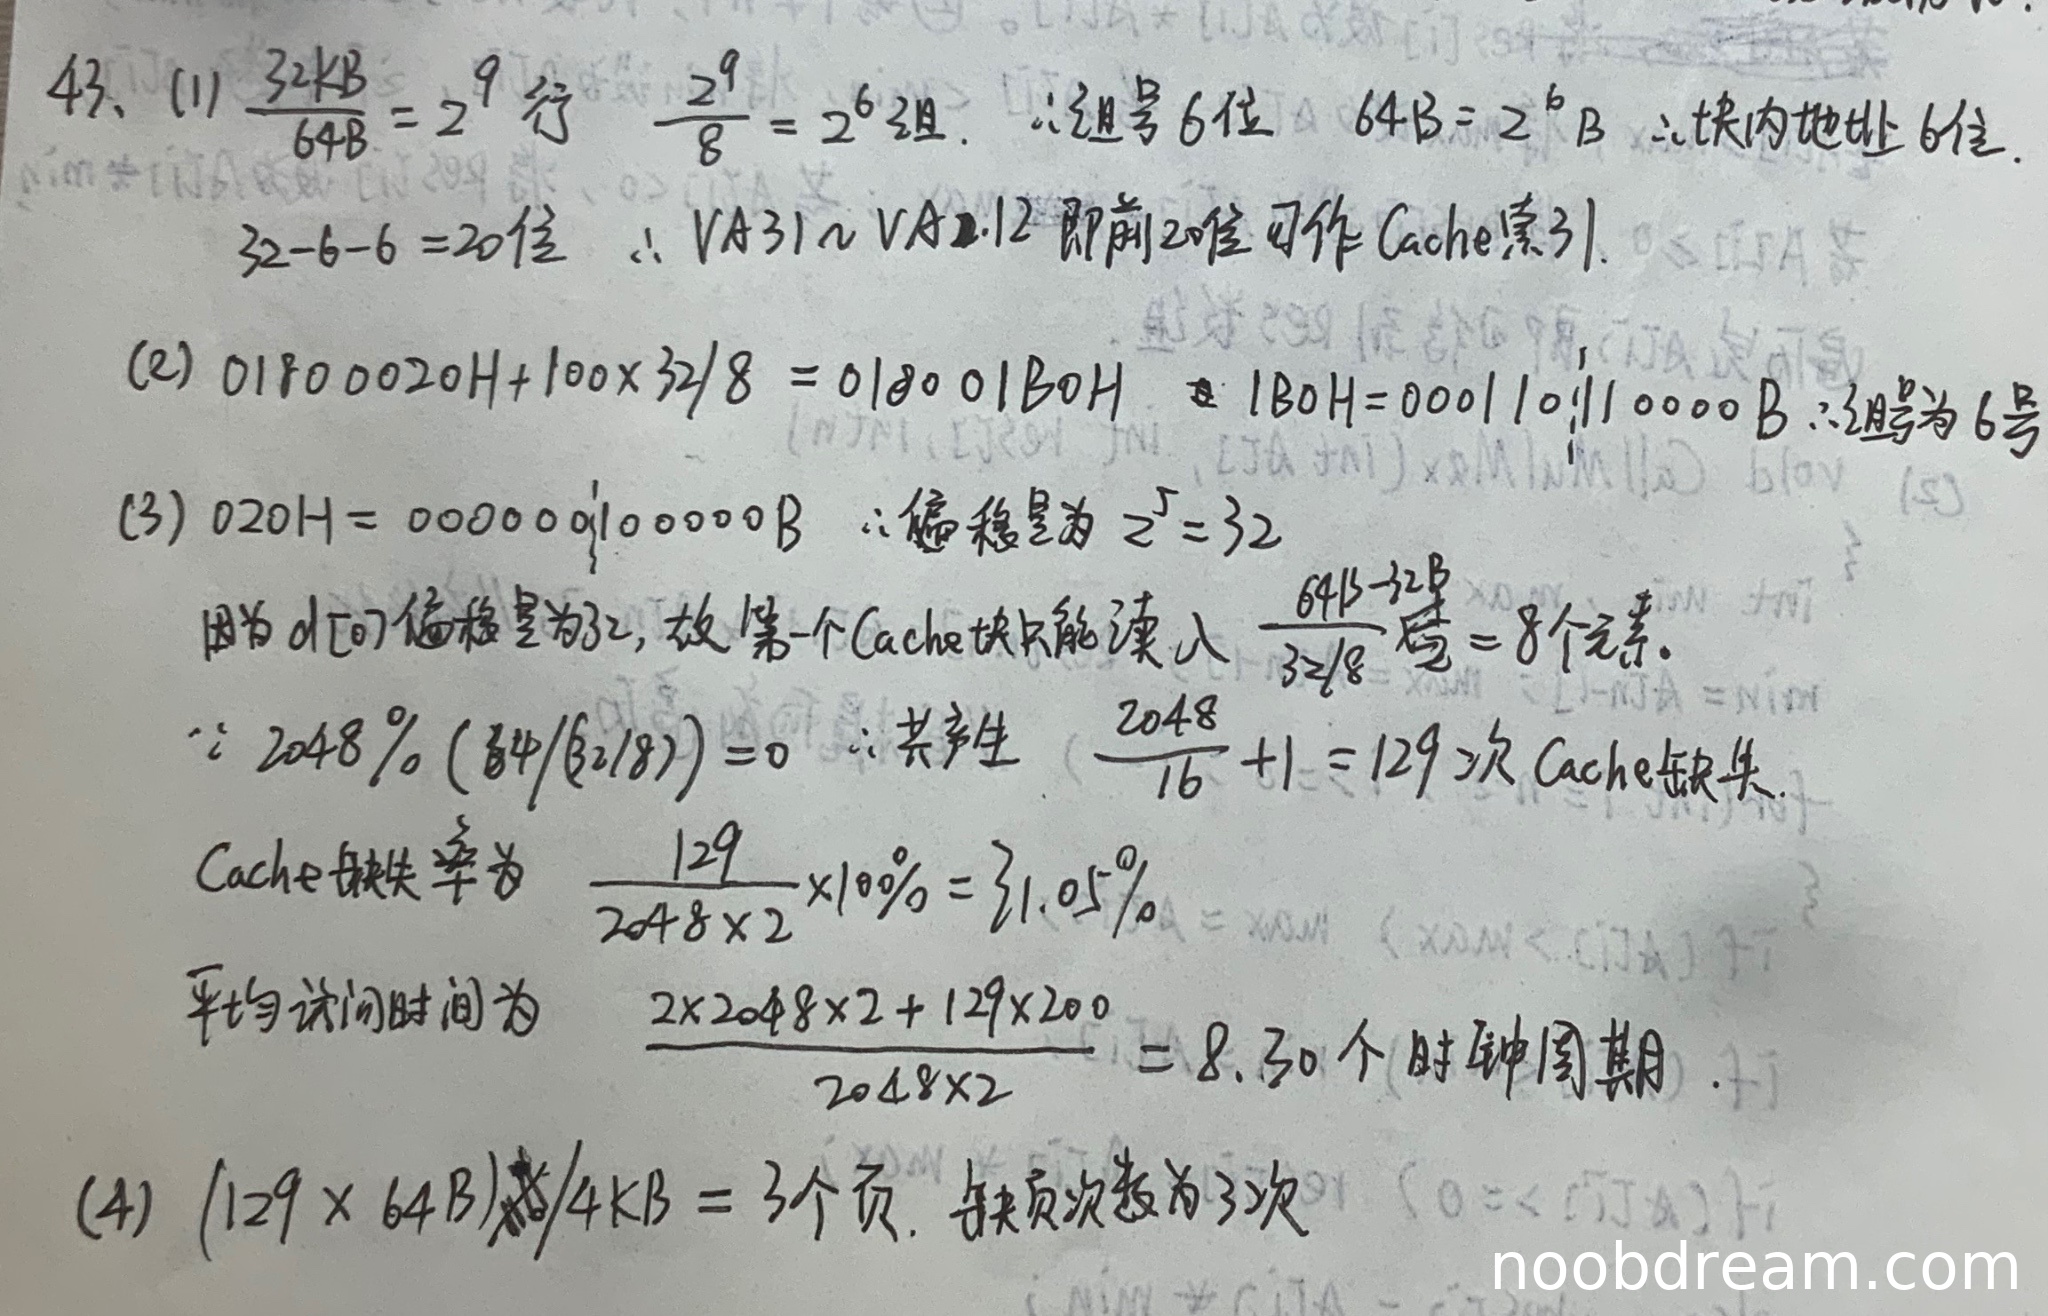 43、(1) 32KB/64B = 2^9 行 2^9/8 = 2^6 组. ∴组号6位 64B = 2^6 B ∴块内地址6位.
32-6-6=20位 ∴ VA31~VA12 即前20位可作Cache索引.
(2) 01800020H+100×32/8 = 018001B0H 1B0H=000110110000B ∴组号为6号
(3) 020H = 000000100000B ∴偏移量为 2^5=32
因为d[0]偏移量为32, 故第一个Cache块只能读入 (64B-32B)/(32/8) = 8个元素.
∵ 2048%(64/(32/8))=0 ∴共产生 2048/16 +1 = 129次Cache缺失.
Cache缺失率为 129/(2048×2) ×100% = 3.15%
平均访问时间为 (2×2048×2+129×200)/(2048×2) = 8.30个时钟周期.
(4) (129×64B)/4KB = 3个页. 缺页次数为3次
noobdream.com